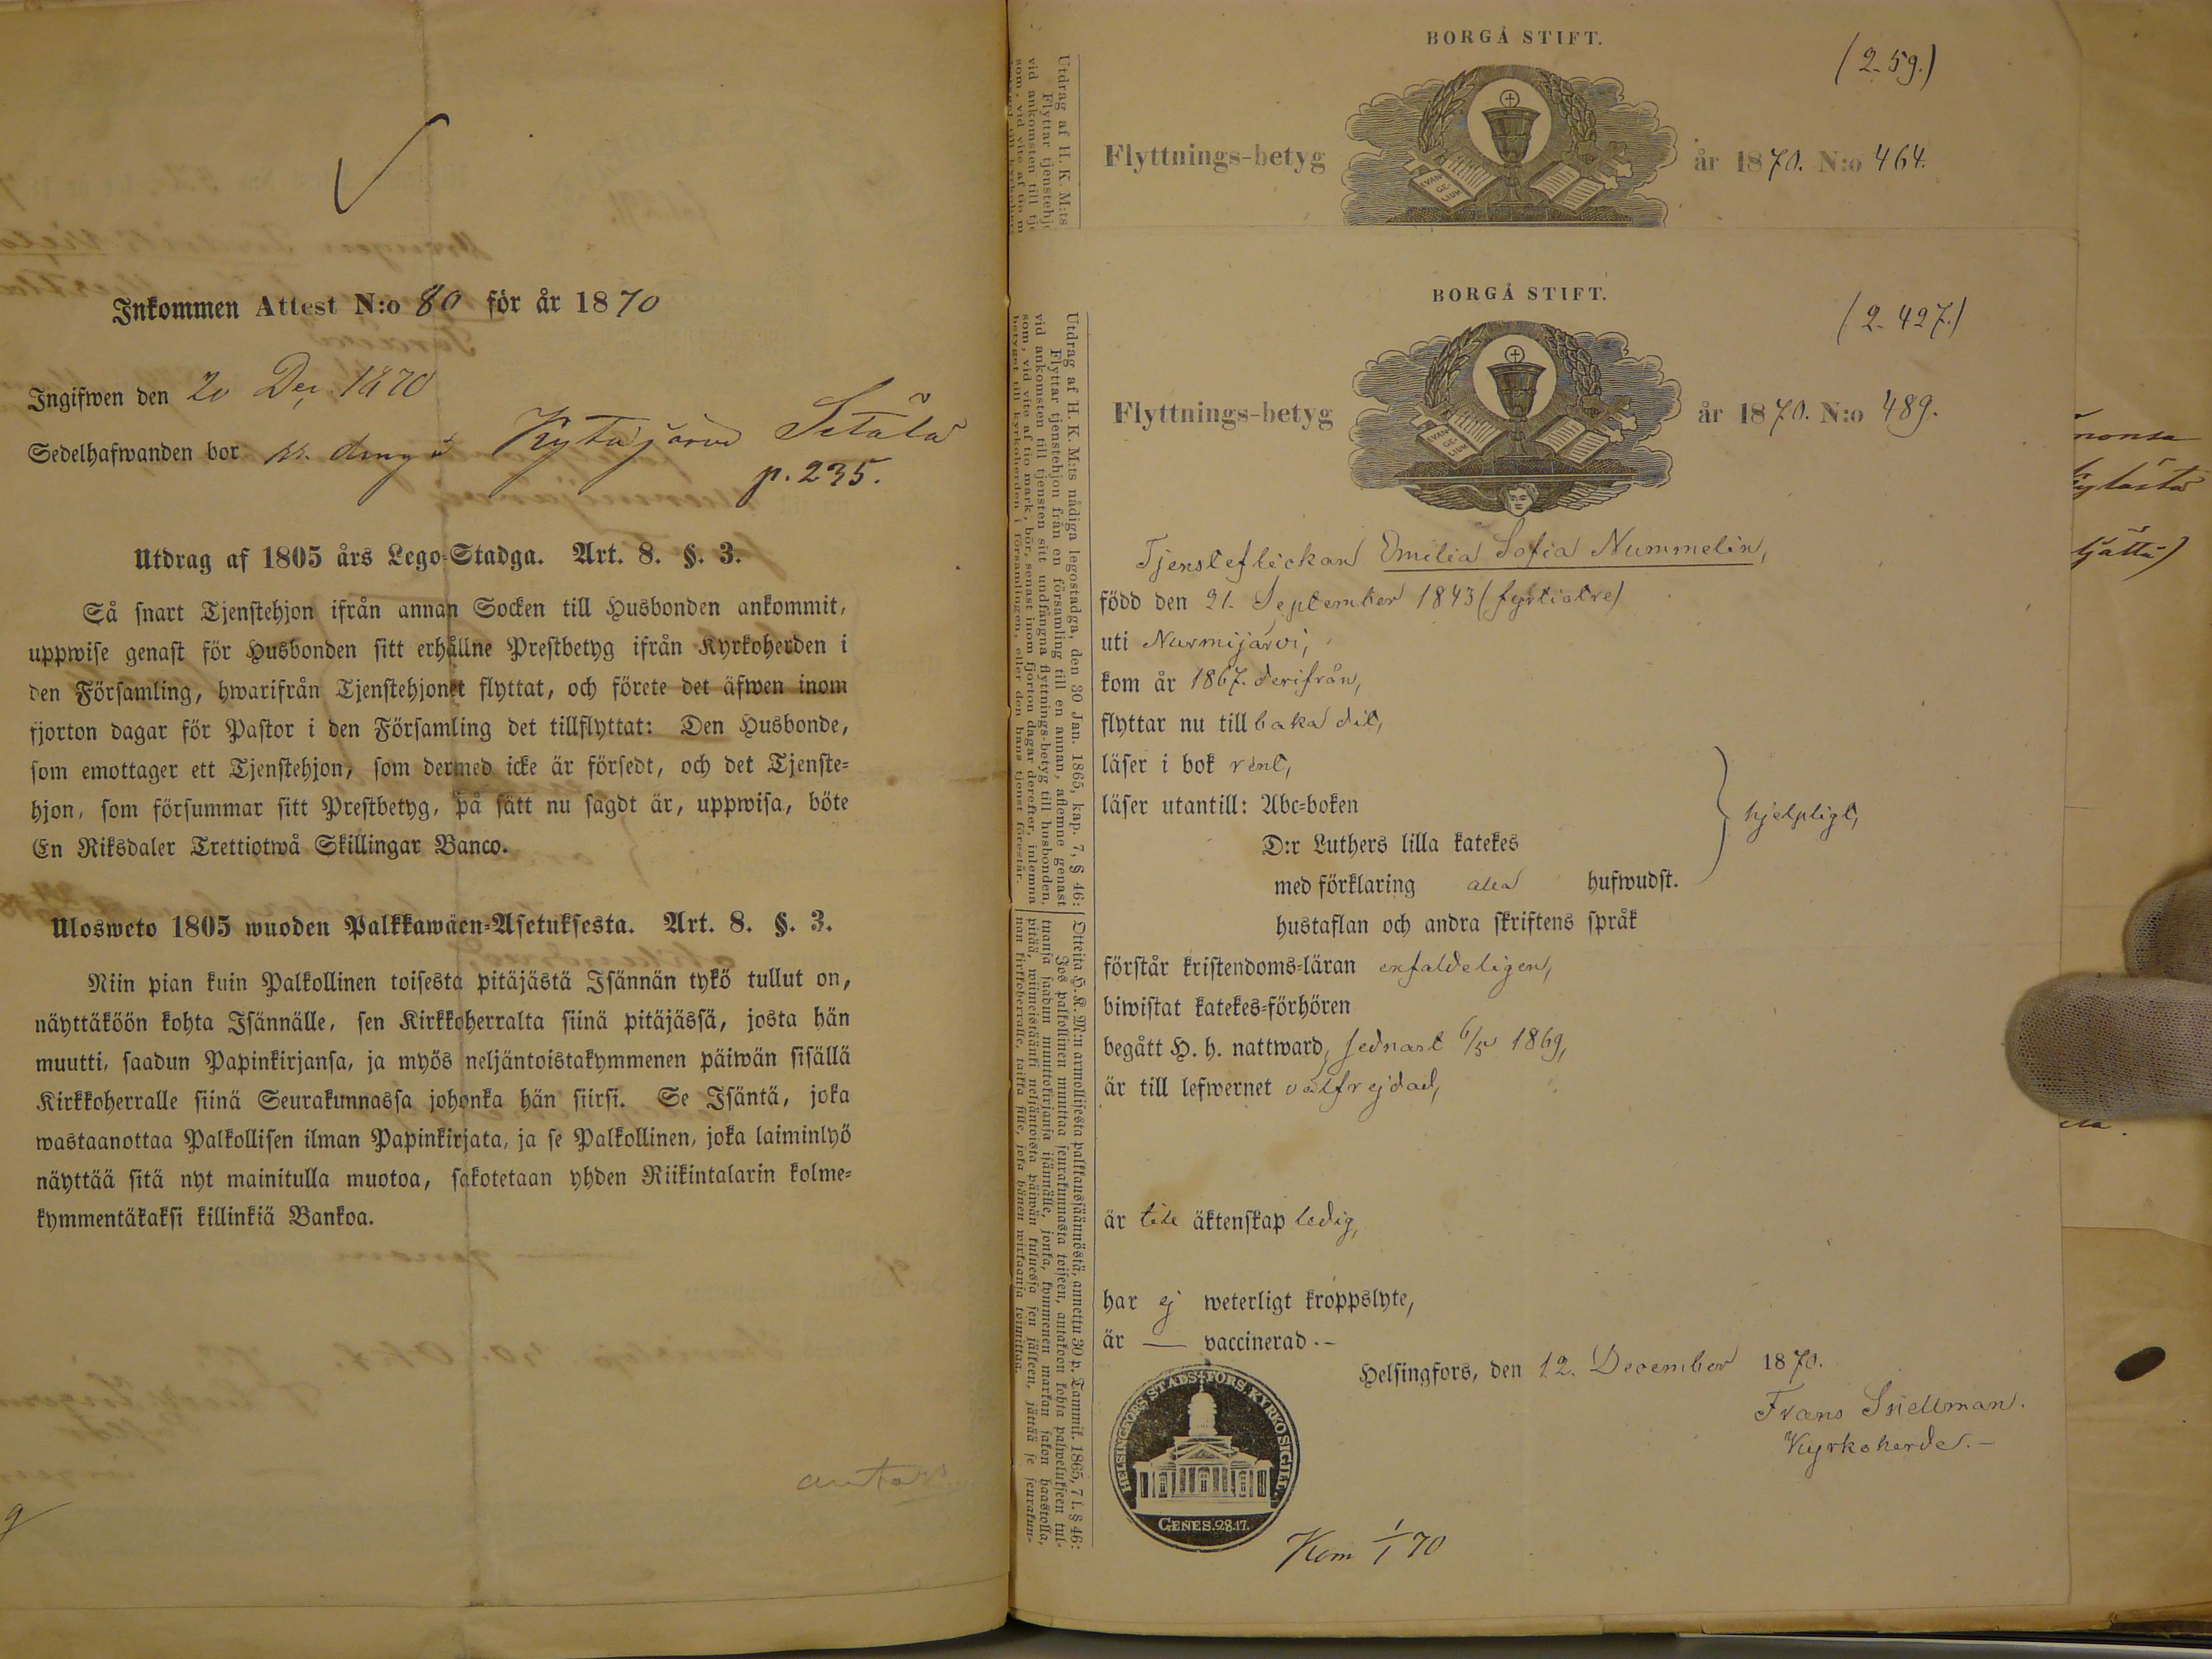 Inkommen Attest N:o 80 för år 1870
Ingifwen den 20 Dec. 1870
Sedelhafwanden bor dräng i Kytäjärvi Setälä
p. 235.
Utdrag af 1805 års Lego-Stadga. Art. 8. §. 3.
Så snart Tjenstehjon ifrån annan Socken till Husbonden ankommit,
uppwise genast för Husbonden sitt erhållne Prestbetyg ifrån Kyrkoherden i
den Församling, hwarifrån Tjenstehjonet flyttat, och förete det äfwen inom
fjorton dagar för Pastor i den Församling det tillflyttat: Den Husbonde,
som emottager ett Tjenstehjon, som dermed icke är försedt, och det Tjenste-
hjon, som försummar sitt Prestbetyg, på sätt nu sagdt är, uppwisa, böte
En Riksdaler Trettiotwå Skillingar Banco.
Ulosweto 1805 wuoden Palkkawäen-Asetuksesta. Art. 8. §. 3.
Niin pian kuin Palkollinen toisesta pitäjästä Isännän tykö tullut on,
näyttäköön kohta Isännälle, sen Kirkkoherralta siinä pitäjässä, josta hän
muutti, saadun Papinkirjansa, ja myös neljäntoistakymmenen päiwän sisällä
Kirkkoherralle siinä Seurakunnassa johonka hän siirsi. Se Isäntä, joka
wastaanottaa Palkollisen ilman Papinkirjata, ja se Palkollinen, joka laiminlyö
näyttää sitä nyt mainitulla muotoa, sakotetaan yhden Riikintalarin kolme-
kymmentäkaksi killinkiä Bankoa.
BORGÅ STIFT.
(2.59.)
Flyttnings-betyg år 1870. N:o 464.
EVAN GE- LIUM
Utdrag af H. K. M:ts
Flyttar tjenstehj
vid ankomsten till tj
som, vid vite af tio m
BORGÅ STIFT.
(2.427.)
Flyttnings-betyg år 1870. N:o 489.
EVAN GE- LIUM
Tjensteflickan Emilia Sofia Nummelin,
född den 21. September 1843 (fyrtiotre)
uti Nurmijärvi,
kom år 1867. derifrån,
flyttar nu tillbaka dit,
läser i bok rent,
läser utantill: Abc-boken
D:r Luthers lilla katekes
med förklaring alla hufwudst.
hustaflan och andra skriftens språk
hjelpligt,
förstår kristendoms-läran enfaldeligen,
biwistat katekes-förhören
begått H. h. nattward, sednast 6/5 1869,
är till lefwernet välfrejdad,
är till äktenskap ledig,
har ej weterligt kroppslyte,
är — vaccinerad.—
Helsingfors, den 12. December 1870.
Frans
Kyrkoherde.—
HELSINGFORS STADS FÖRS. KYRKOSIGILL.
GENES. 28.17.
Kom 1/1 70
Utdrag af H. K. M:ts nådiga legostadga, den 30 Jan. 1865, kap. 7, § 46:
Flyttar tjenstehjon från en församling till en annan, aflemne genast
vid ankomsten till tjensten sitt undfångna flyttnings-betyg till husbonden,
som, vid vite af tio mark, bör, senast inom fjorton dagar derefter, inlemna
betyget till kyrkoherden i församlingen, eller den hans tjenst förestår.
Otteita H. K. M:n armollisesta palkkaussäännöstä, annettu 30 p. Tammik. 1865, 7 l. § 46:
Jos palkollinen muuttaa seurakunnasta toiseen, antakoon kohta palwelukseen tul-
tuansa saadun muuttokirjansa isännälle, jonka, kymmenen markan sakon haastolla,
pitää, wiimeistäänki neljäntoista päiwän kuluessa sen jälkeen, jättää se seurakun-
nan kirkkoherralle, taikka sille, joka hänen wirkaansa toimittaa.